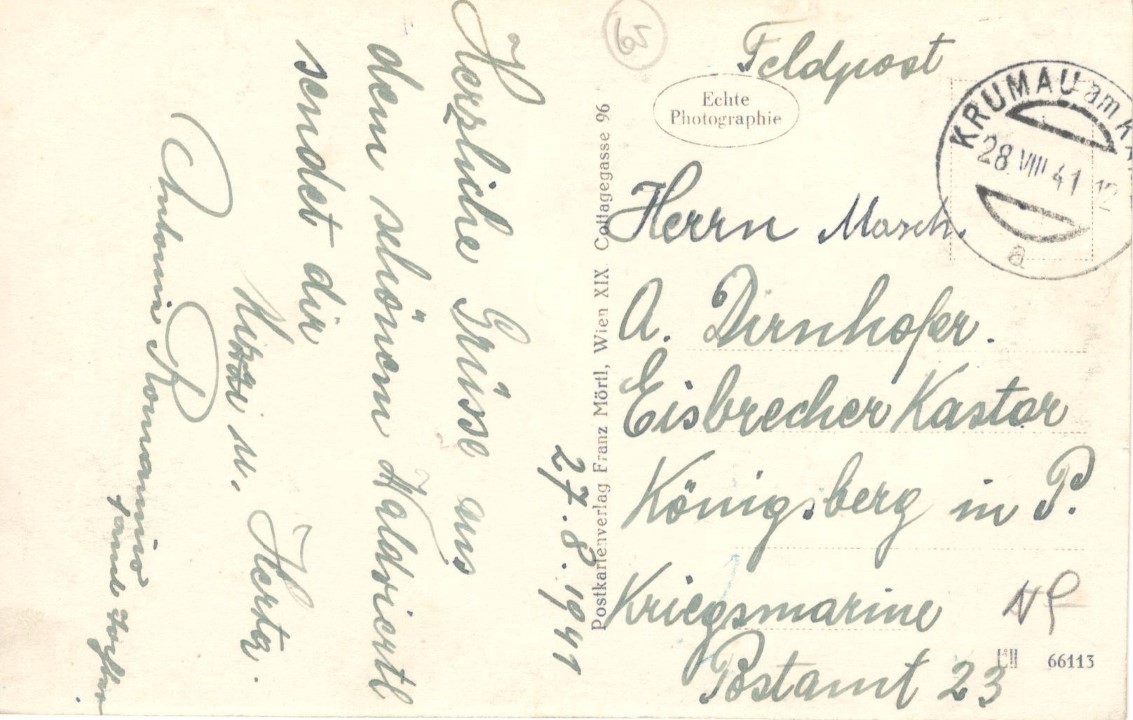 27.8.1941
Herzliche Grüsse aus
dem schönem Waldviertl
sendet dir
u. Herta.
Feldpost
Echte
Photographie
KRUMAU am
28.VIII 41 12
a
Herrn Masch.
A. Dirnhofer.
Eisbrecher Kastor
Königsberg in P.
Kriegsmarine
Postamt 23
66113
Postkartenverlag Franz Mörtl, Wien XIX. Cottagegasse 96